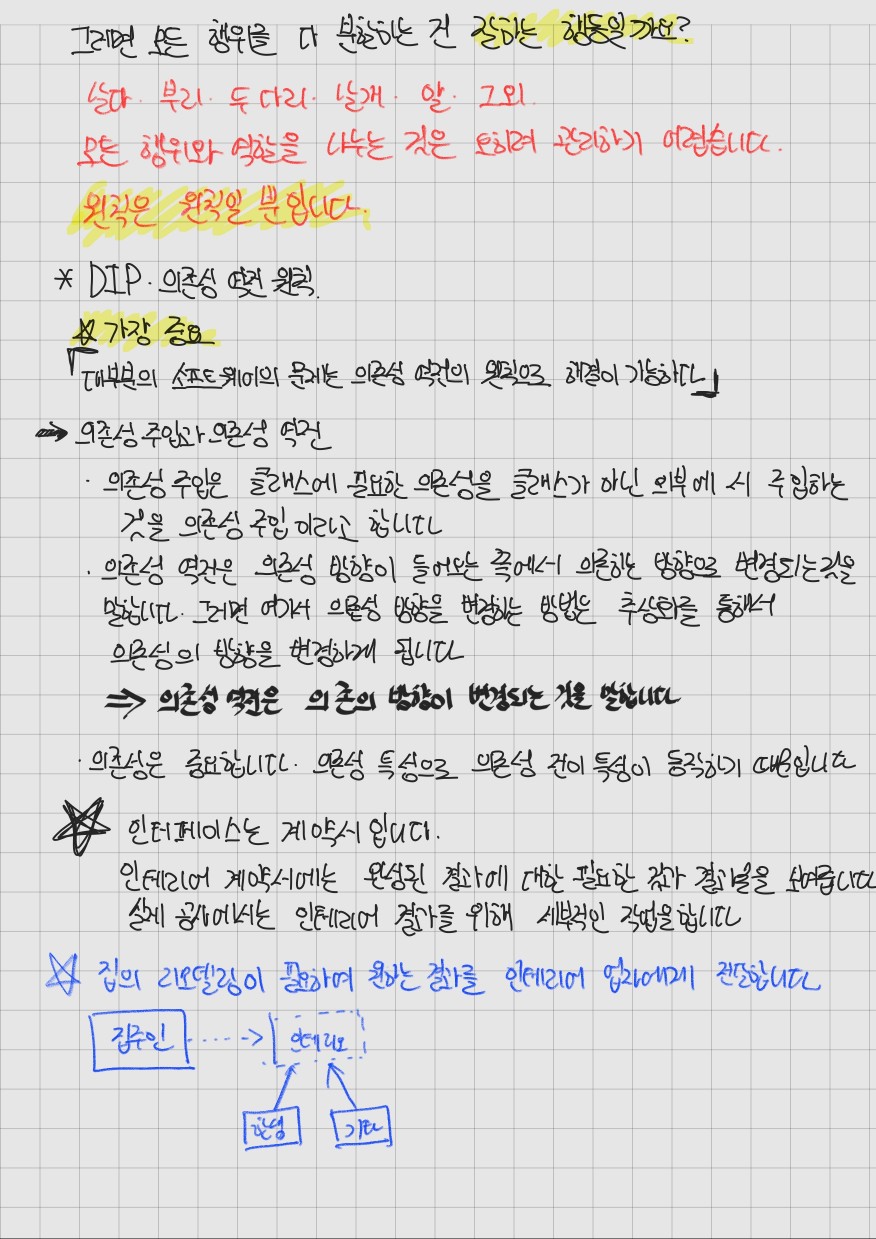 그러면 모든 행위를 다 분할하는 건 잘하는 행동일까요?
날다. 부리. 두 다리. 날개. 알. 그외.
모든 행위와 역할을 나누는 것은 오히려 관리하기 어렵습니다.
원칙은 원칙일 뿐입니다.
* DIP. 의존성 역전 원칙.
☆ 가장 중요
「대부분의 소프트웨어의 문제는 의존성 역전의 원칙으로 해결이 가능하다」
➡ 의존성 주입과 의존성 역전
· 의존성 주입은 클래스에 필요한 의존성을 클래스가 아닌 외부에서 주입하는
것을 의존성 주입이라고 합니다
· 의존성 역전은 의존성 방향이 들어오는 쪽에서 의존하는 방향으로 변경되는것을
말합니다. 그러면 여기서 의존성 방향을 변경하는 방법은 추상화를 통해서
의존성의 방향을 변경하게 됩니다
=> 의존성 역전은 의존의 방향이 변경되는 것을 말합니다
· 의존성은 중요합니다. 의존성 특성으로 의존성 전이 특성이 동작하기 때문입니다
☆ 인터페이스는 계약서입니다.
인테리어 계약서에는 완성된 결과에 대한 필요한 결과 결과물을 보여줍니다
실제 공사에서는 인테리어 결과를 위해 세부적인 작업을합니다
☆ 집의 리모델링이 필요하여 원하는 결과를 인테리어 업자에게 전달합니다
집주인 ····> 인테리모
한샘 기타